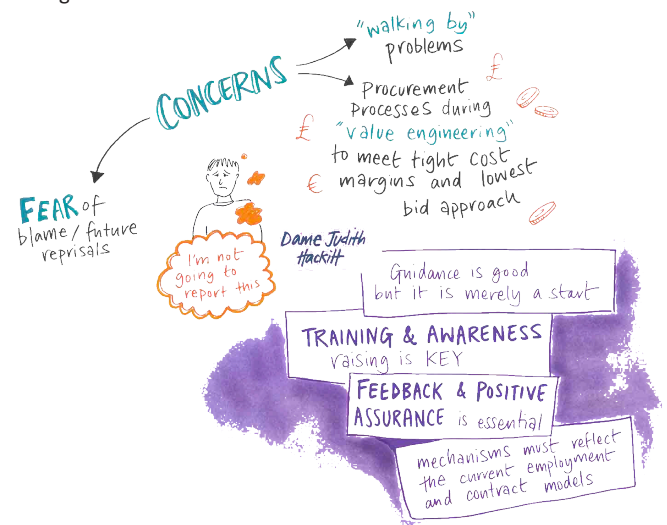 CONCERNS
"walking by"
problems
Procurement
Processes during
"value engineering"
to meet tight cost
margins and lowest
bid approach
£
£
€
FEAR of
blame/future
reprisals
I'm not
going to
report this
Dame Judith
Hackitt
Guidance is good
but it is merely a start
TRAINING & AWARENESS
raising is KEY
FEEDBACK & POSITIVE
ASSURANCE is essential
mechanisms must reflect
the current employment
and contract models